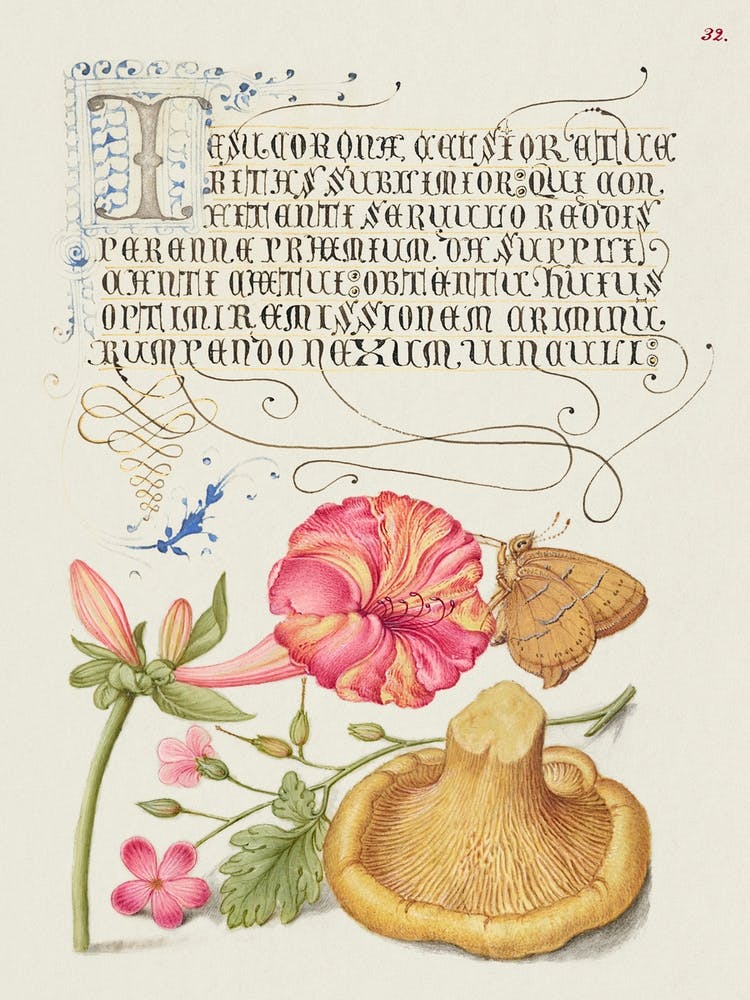 32.
IESU CORONA CELSIOR ET VE
RITAS SUBLIMIOR: QUI CON,
FITENTI SERVULO REDDIS
PERENNE PRÆMIUM. DA SUPPLI
CANTI CÆTUI: OBTENTU HUIUS
OPTIMI REMISSIONEM CRIMINU,
RUMPENDO NEXUM VINCULI: